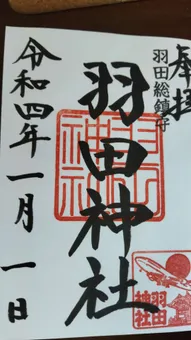 奉拝
羽田総鎮守
羽田神社
令和四年一月一日
羽田神社
羽田
神社